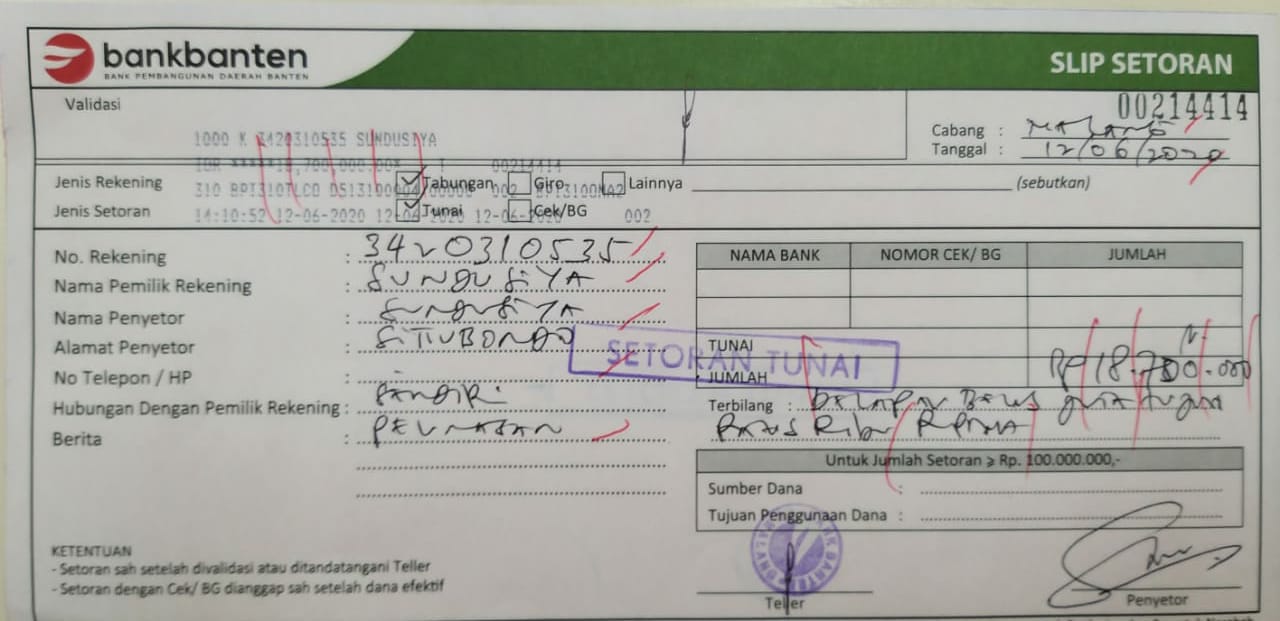 bankbanten
BANK PEMBANGUNAN DAERAH BANTEN
SLIP SETORAN
00214414
Validasi
1000 K 3420310535 SUNDUSIYA
IDR *****18,700,000.00* 00214414
Cabang : MALANG
Tanggal : 12/06/2020
Jenis Rekening Tabungan Giro Lainnya (sebutkan)
002
Jenis Setoran Tunai Cek/BG
14:10:52 12-06-2020 12-06-2020 12-06-2020 002
No. Rekening : 3420310535
Nama Pemilik Rekening : SUNDUSIYA
Nama Penyetor : SUNDUSIYA
Alamat Penyetor : SITUBONDO
No Telepon / HP :
Hubungan Dengan Pemilik Rekening : SENDIRI
Berita : PELUNASAN
NAMA BANK NOMOR CEK/ BG JUMLAH
TUNAI
JUMLAH Rp 18.700.000
SETORAN TUNAI
Terbilang : DELAPAN BELAS JUTA TUJUH
RATUS RIBU RUPIAH
Untuk Jumlah Setoran ⩾ Rp. 100.000.000,-
Sumber Dana :
Tujuan Penggunaan Dana :
KETENTUAN
- Setoran sah setelah divalidasi atau ditandatangani Teller
- Setoran dengan Cek/ BG dianggap sah setelah dana efektif
Teller
Penyetor